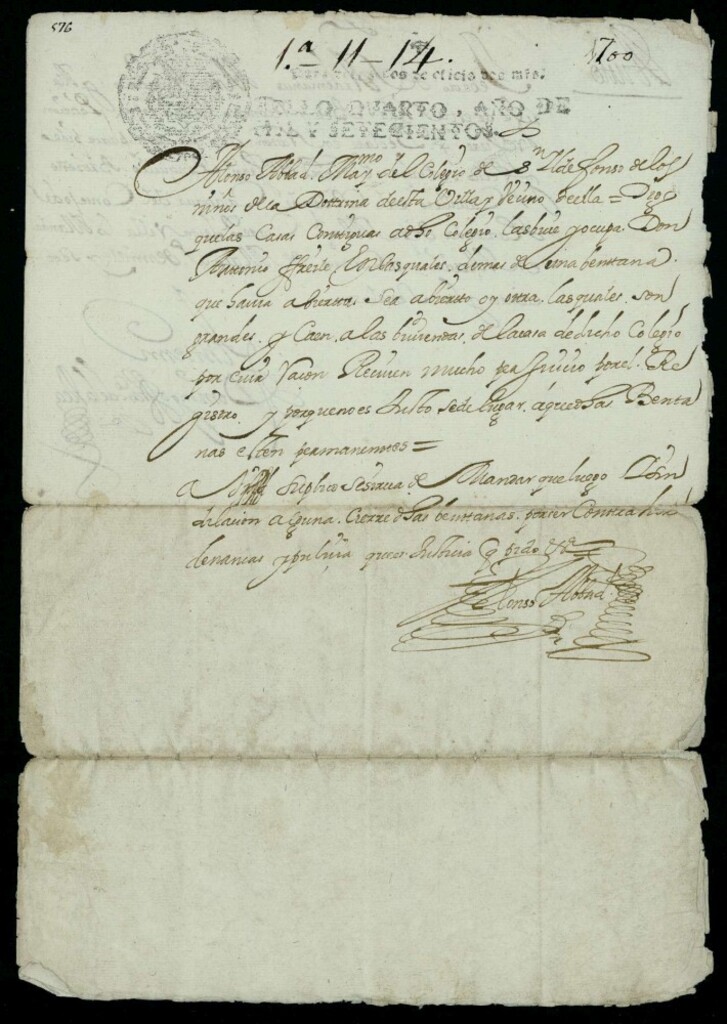 576
1.ª 11-14. 1700
SELLO QVARTO, AÑO DE
MIL Y SETECIENTOS.
Alonso Abbad. Maymo del Colegio de Sn Ildefonso de los
niños de la Dottrina de esta Villa y Vecino de ella = Digo
que las Casas Contiguas a dho Colegio. las biue y ocupa. Don
Antonio freile En las quales. demas de una bentana.
que hauia abierta Se a abierto oy otra. las quales. son
grandes. y Caen. a las biuiendas. de la casa de dicho Colegio
por cuia Raçon Reciuen mucho perJuicio por el. Re
gistro. y porque no es Justo se de lugar. a que dhas Benta
nas esten permanentes =
A Suplico se sirua de Mandar que luego Sin
dilacion alguna. Cierre dhas bentanas. por ser Contra hor
denanças y puliçia que es Justicia q pido &a
Alonso Abbad